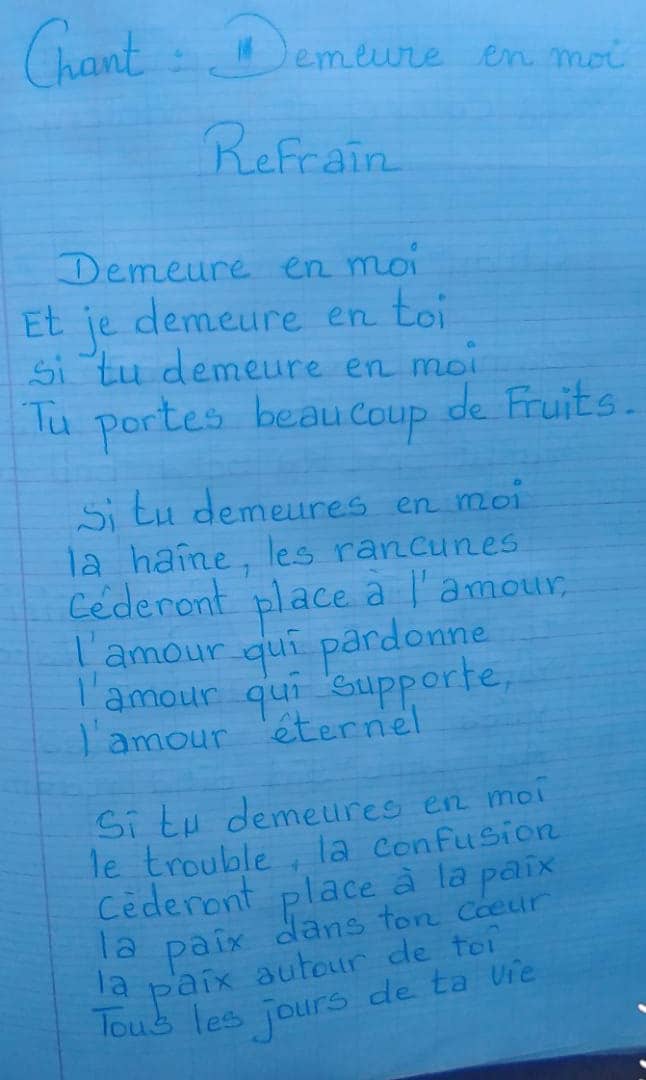 Chant : Demeure en moi
Refrain
Demeure en moi
Et je demeure en toi
Si tu demeure en moi
Tu portes beaucoup de Fruits.
Si tu demeures en moi
la haine, les rancunes
Céderont place à l'amour,
l'amour qui pardonne
l'amour qui supporte,
l'amour éternel
Si tu demeures en moi
le trouble, la confusion
Cèderont place à la paix
la paix dans ton coeur
la paix autour de toi
Tous les jours de ta vie